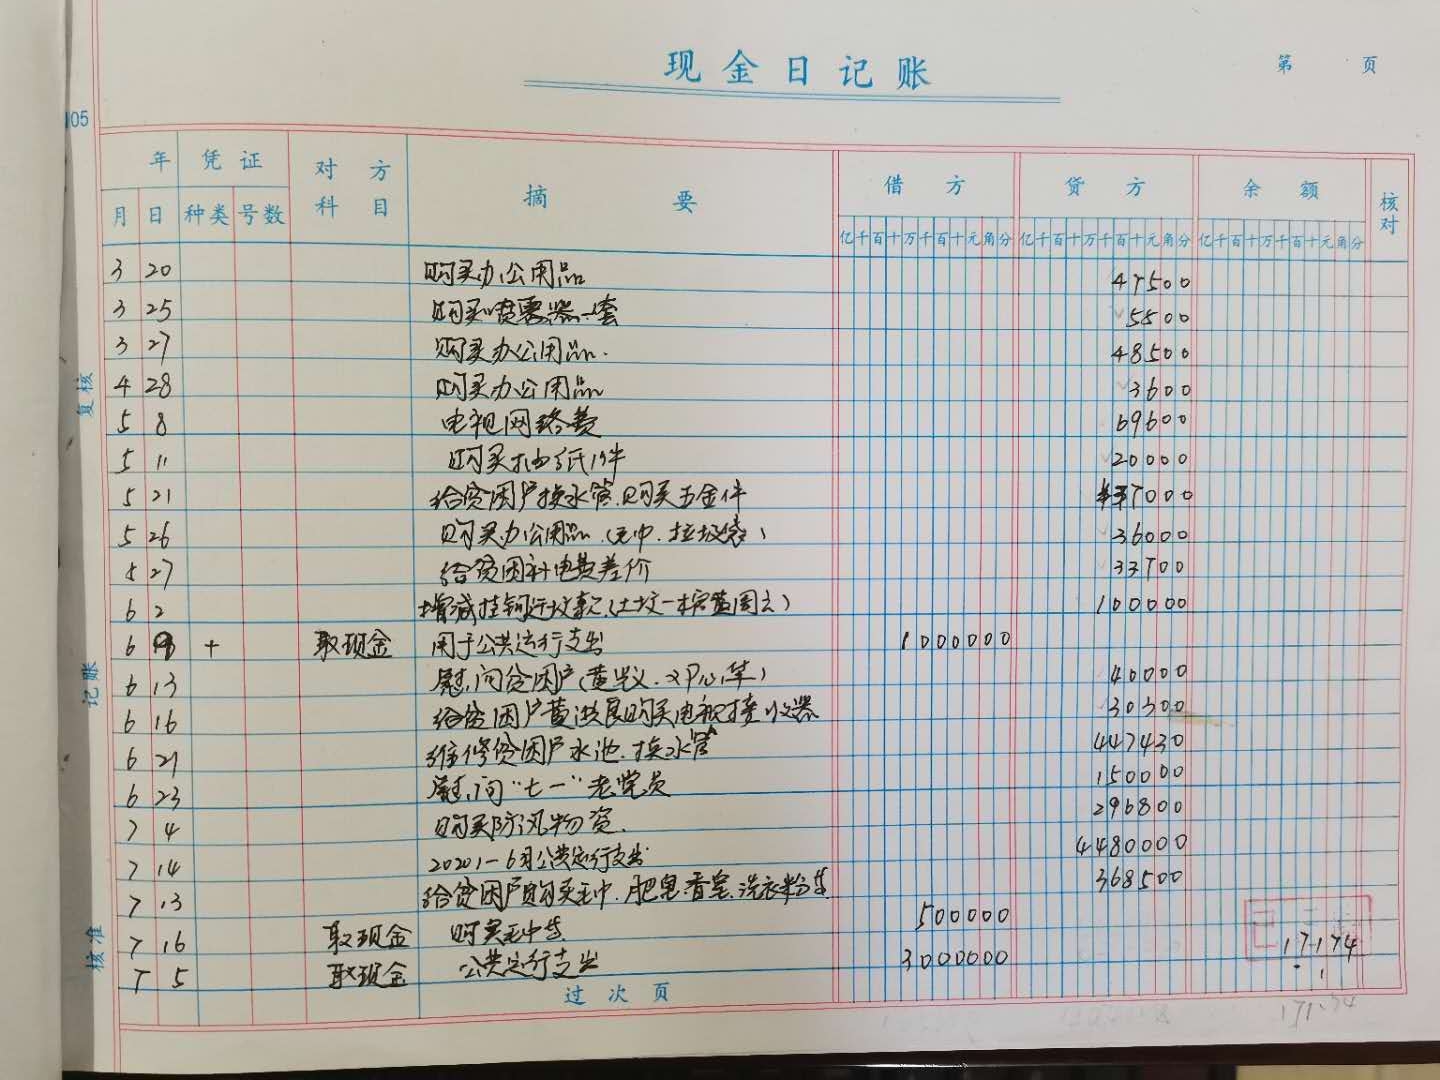 现金日记账
第 页
105
年 凭证 对方科目 摘要 借方 贷方 余额 核对
月 日 种类 号数 亿千百十万千百十元角分 亿千百十万千百十元角分 亿千百十万千百十元角分
3 20 购买办公用品 47500
3 25 购买喷雾器一套 5500
3 27 购买办公用品. 48500
4 28 购买办公用品 3600
5 8 电视网络费 69600
5 11 购买抽纸1件 20000
5 21 给贫困户换水管.购买五金件 7000
5 26 购买办公用品.(毛巾.垃圾袋) 36000
5 27 给贫困补电费差价 33700
6 2 100000
6 9 + 取现金 用于公共运行支出 1000000
6 13 慰问贫困户 40000
6 16 给贫困户黄洪展购买电视接收器 30300
6 21 维修贫困户水池.换水管 447430
6 23 慰问"七一"老党员 150000
7 4 购买防汛物资. 296800
7 14 20201-6月公共运行支出 4480000
7 13 给贫困户购买毛巾.肥皂.香皂.洗衣粉等 368500
7 16 取现金 购买毛巾等 500000
7 5 取现金 公共运行支出 3000000 17174
过次页
171.74
复核
记账
核准